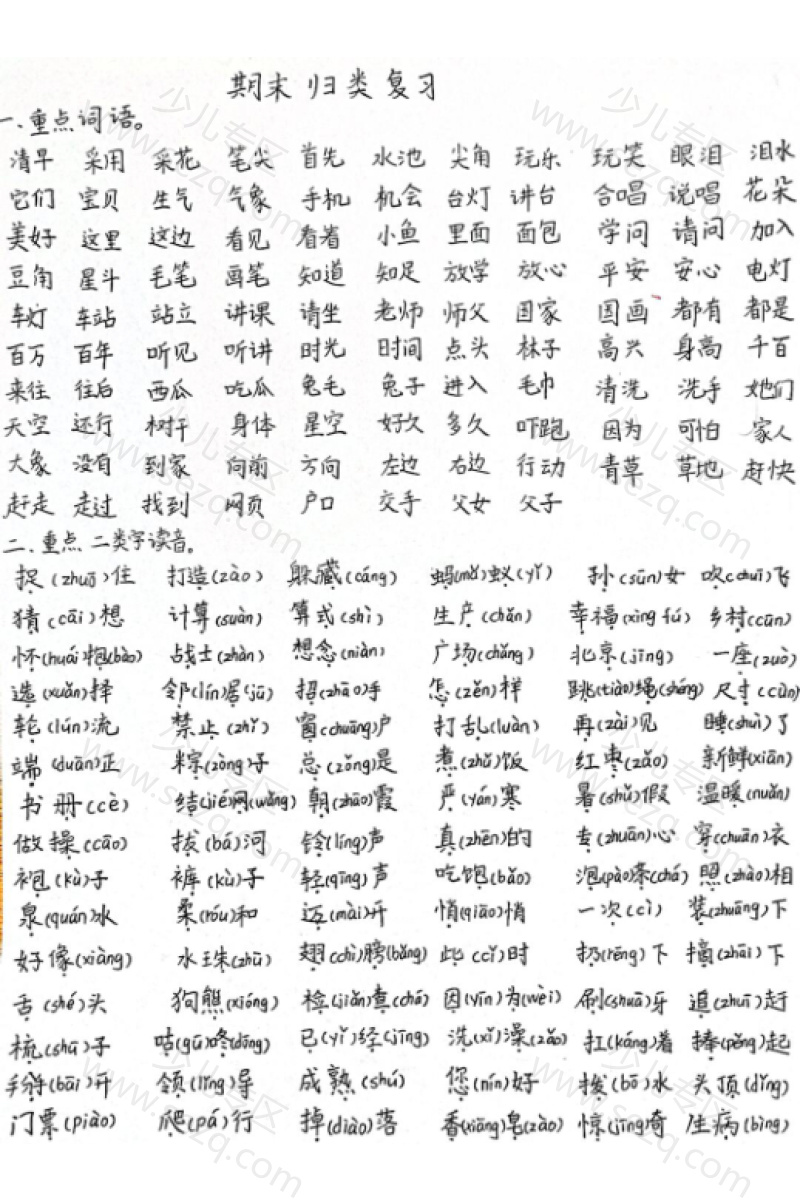 期末归类复习
一、重点词语。
清早 采用 采花 笔尖 首先 水池 尖角 玩乐 玩笑 眼泪 泪水
它们 宝贝 生气 气象 手机 机会 台灯 讲台 合唱 说唱 花朵
美好 这里 这边 看见 看着 小鱼 里面 面包 学问 请问 加入
豆角 星斗 毛笔 画笔 知道 知足 放学 放心 平安 安心 电灯
车灯 车站 站立 讲课 请坐 老师 师父 国家 国画 都有 都是
百万 百年 听见 听讲 时光 时间 点头 林子 高兴 身高 千百
来往 往后 西瓜 吃瓜 兔毛 兔子 进入 毛巾 清洗 洗手 她们
天空 还行 树干 身体 星空 好久 多久 吓跑 因为 可怕 家人
大象 没有 到家 向前 方向 左边 右边 行动 青草 草地 赶快
赶走 走过 找到 网页 户口 交手 父女 父子
二、重点二类字读音。
捉(zhuō)住 打造(zào) 躲藏(cáng) 蚂(mǎ)蚁(yǐ) 孙(sūn)女 吹(chuī)飞
猜(cāi)想 计算(suàn) 算式(shì) 生产(chǎn) 幸福(xìng fú) 乡村(cūn)
怀(huái)抱(bào) 战士(zhàn) 想念(niàn) 广场(chǎng) 北京(jīng) 一座(zuò)
选(xuǎn)择 邻(lín)居(jū) 招(zhāo)手 怎(zěn)样 跳(tiào)绳(shéng) 尺寸(cùn)
轮(lún)流 禁止(zhǐ) 窗(chuāng)户 打乱(luàn) 再(zài)见 睡(shuì)了
端(duān)正 粽(zòng)子 总(zǒng)是 煮(zhǔ)饭 红枣(zǎo) 新鲜(xiān)
书册(cè) 结(jié)网(wǎng) 朝(zhāo)霞 严(yán)寒 暑(shǔ)假 温暖(nuǎn)
做操(cāo) 拔(bá)河 铃(líng)声 真(zhēn)的 专(zhuān)心 穿(chuān)衣
袍(kù)子 裤(kù)子 轻(qīng)声 吃饱(bǎo) 泡(pào)茶(chá) 照(zhào)相
泉(quán)水 柔(róu)和 迈(mài)开 悄(qiāo)悄 一次(cì) 装(zhuāng)下
好像(xiàng) 水珠(zhū) 翅(chì)膀(bǎng) 此(cǐ)时 扔(rēng)下 摘(zhāi)下
舌(shé)头 狗熊(xióng) 检(jiǎn)查(chá) 因(yīn)为(wèi) 刷(shuā)牙 追(zhuī)赶
梳(shū)子 咕(gū)咚(dōng) 已(yǐ)经(jīng) 洗(xǐ)澡(zǎo) 扛(káng)着 捧(pěng)起
掰(bāi)开 领(lǐng)导 成熟(shú) 您(nín)好 拨(bō)水 头顶(dǐng)
门票(piào) 爬(pá)行 掉(diào)落 香(xiāng)皂(zào) 惊(jīng)奇 生病(bìng)
少儿专区
www.sezq.com